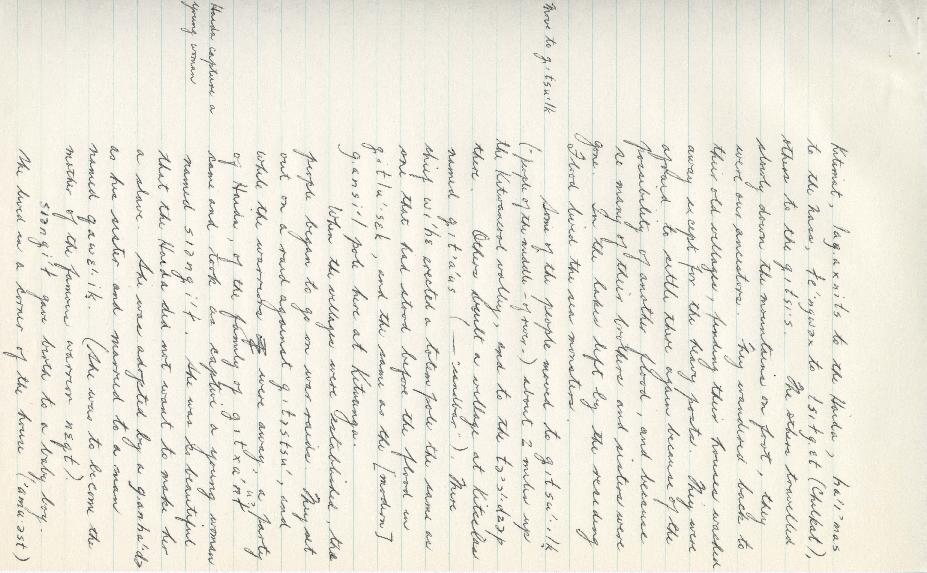 Kitimat, lagiaxnits to the Haida, haiimas
to the Nass, to tsitget (Chilkat),
others to the gitsis. The others travelled
slowly down the mountains on foot, they
were our ancestors. They wandered back to
their old villages, finding their homes washed
away except for the heavy posts. They were
afraid to settle there again because of the
possibility of another flood, and because
so many of their brothers and sisters were
gone. In the lakes left by the receding
Flood lived the sea monsters.
Move to gitsu'lk
Some of the people moved to gitsu'lk
(people of the middle - of river) about 2 miles up
the Kitwancool valley, and to the
there. Others built a village at Kitselas
named git'a'us (— "sandbar") There
chief wi he erected a totem pole the same as
one that had stood before the flood in
git'a'us, and the same as the [modern]
pole here at Kitwanga.
When the villages were established, the
people began to go on war raids. They set
out on a raid against gitzstsu, and
while the warriors were away, a party
of Haida, of the family of
Haida capture a
young woman
came and took as captive a young woman
named siangit. She was so beautiful
that the Haida did not want to make her
a slave. She was adopted by a ganhada
as his sister and married to a man
named gawe'ik. (She was to become the
mother of the famous warrior neqt)
siangit gave birth to a baby boy.
She lived in a corner of the house